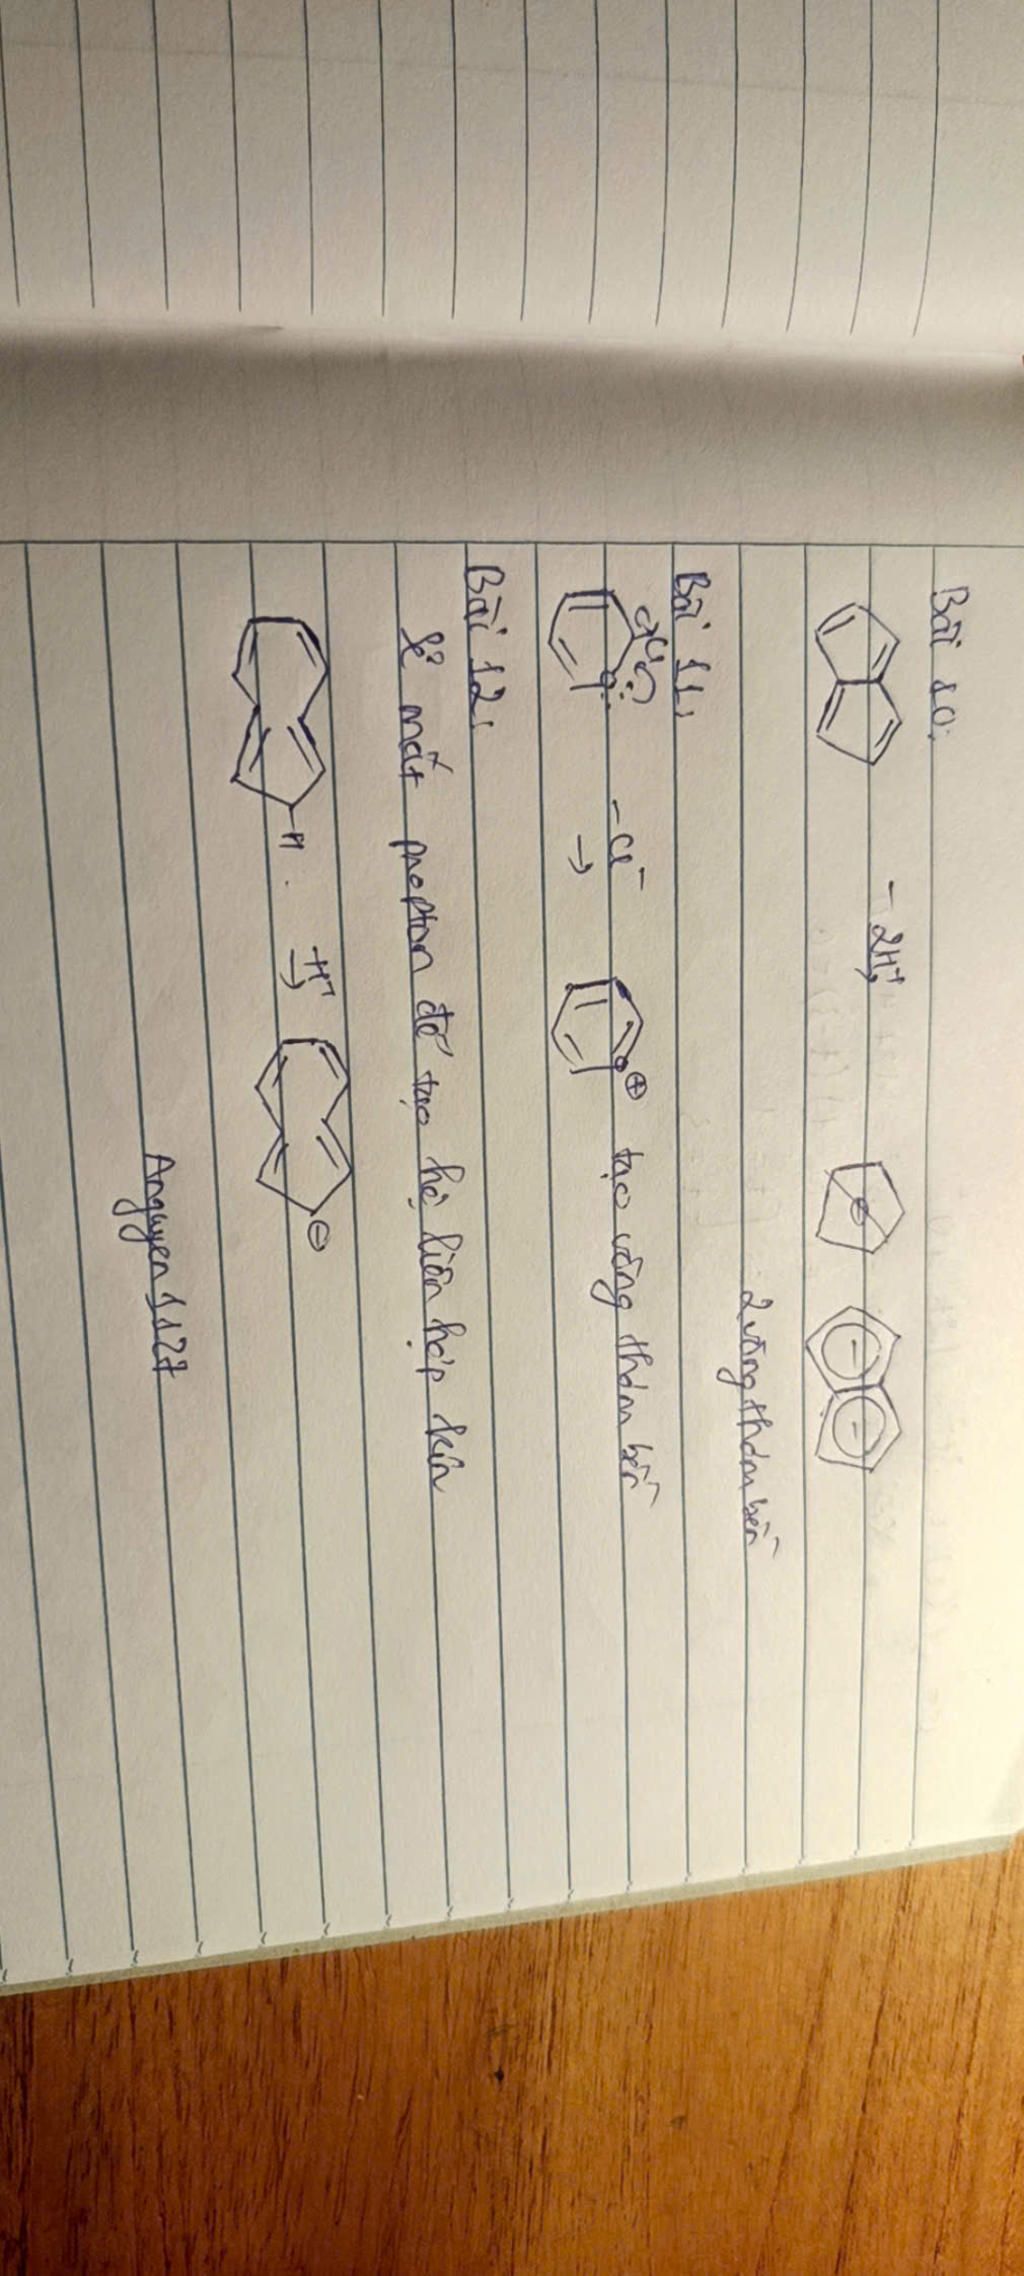 Bài 10:
- 2H⁺
2 vòng thơm bền
Bài 11,
- Cl⁻
→
O ⊕ tạo vòng thơm bền
Bài 12,
sẽ mất proton để tạo hệ liên hợp kín
H
-H⁺
→
⊖
Anguyen1127